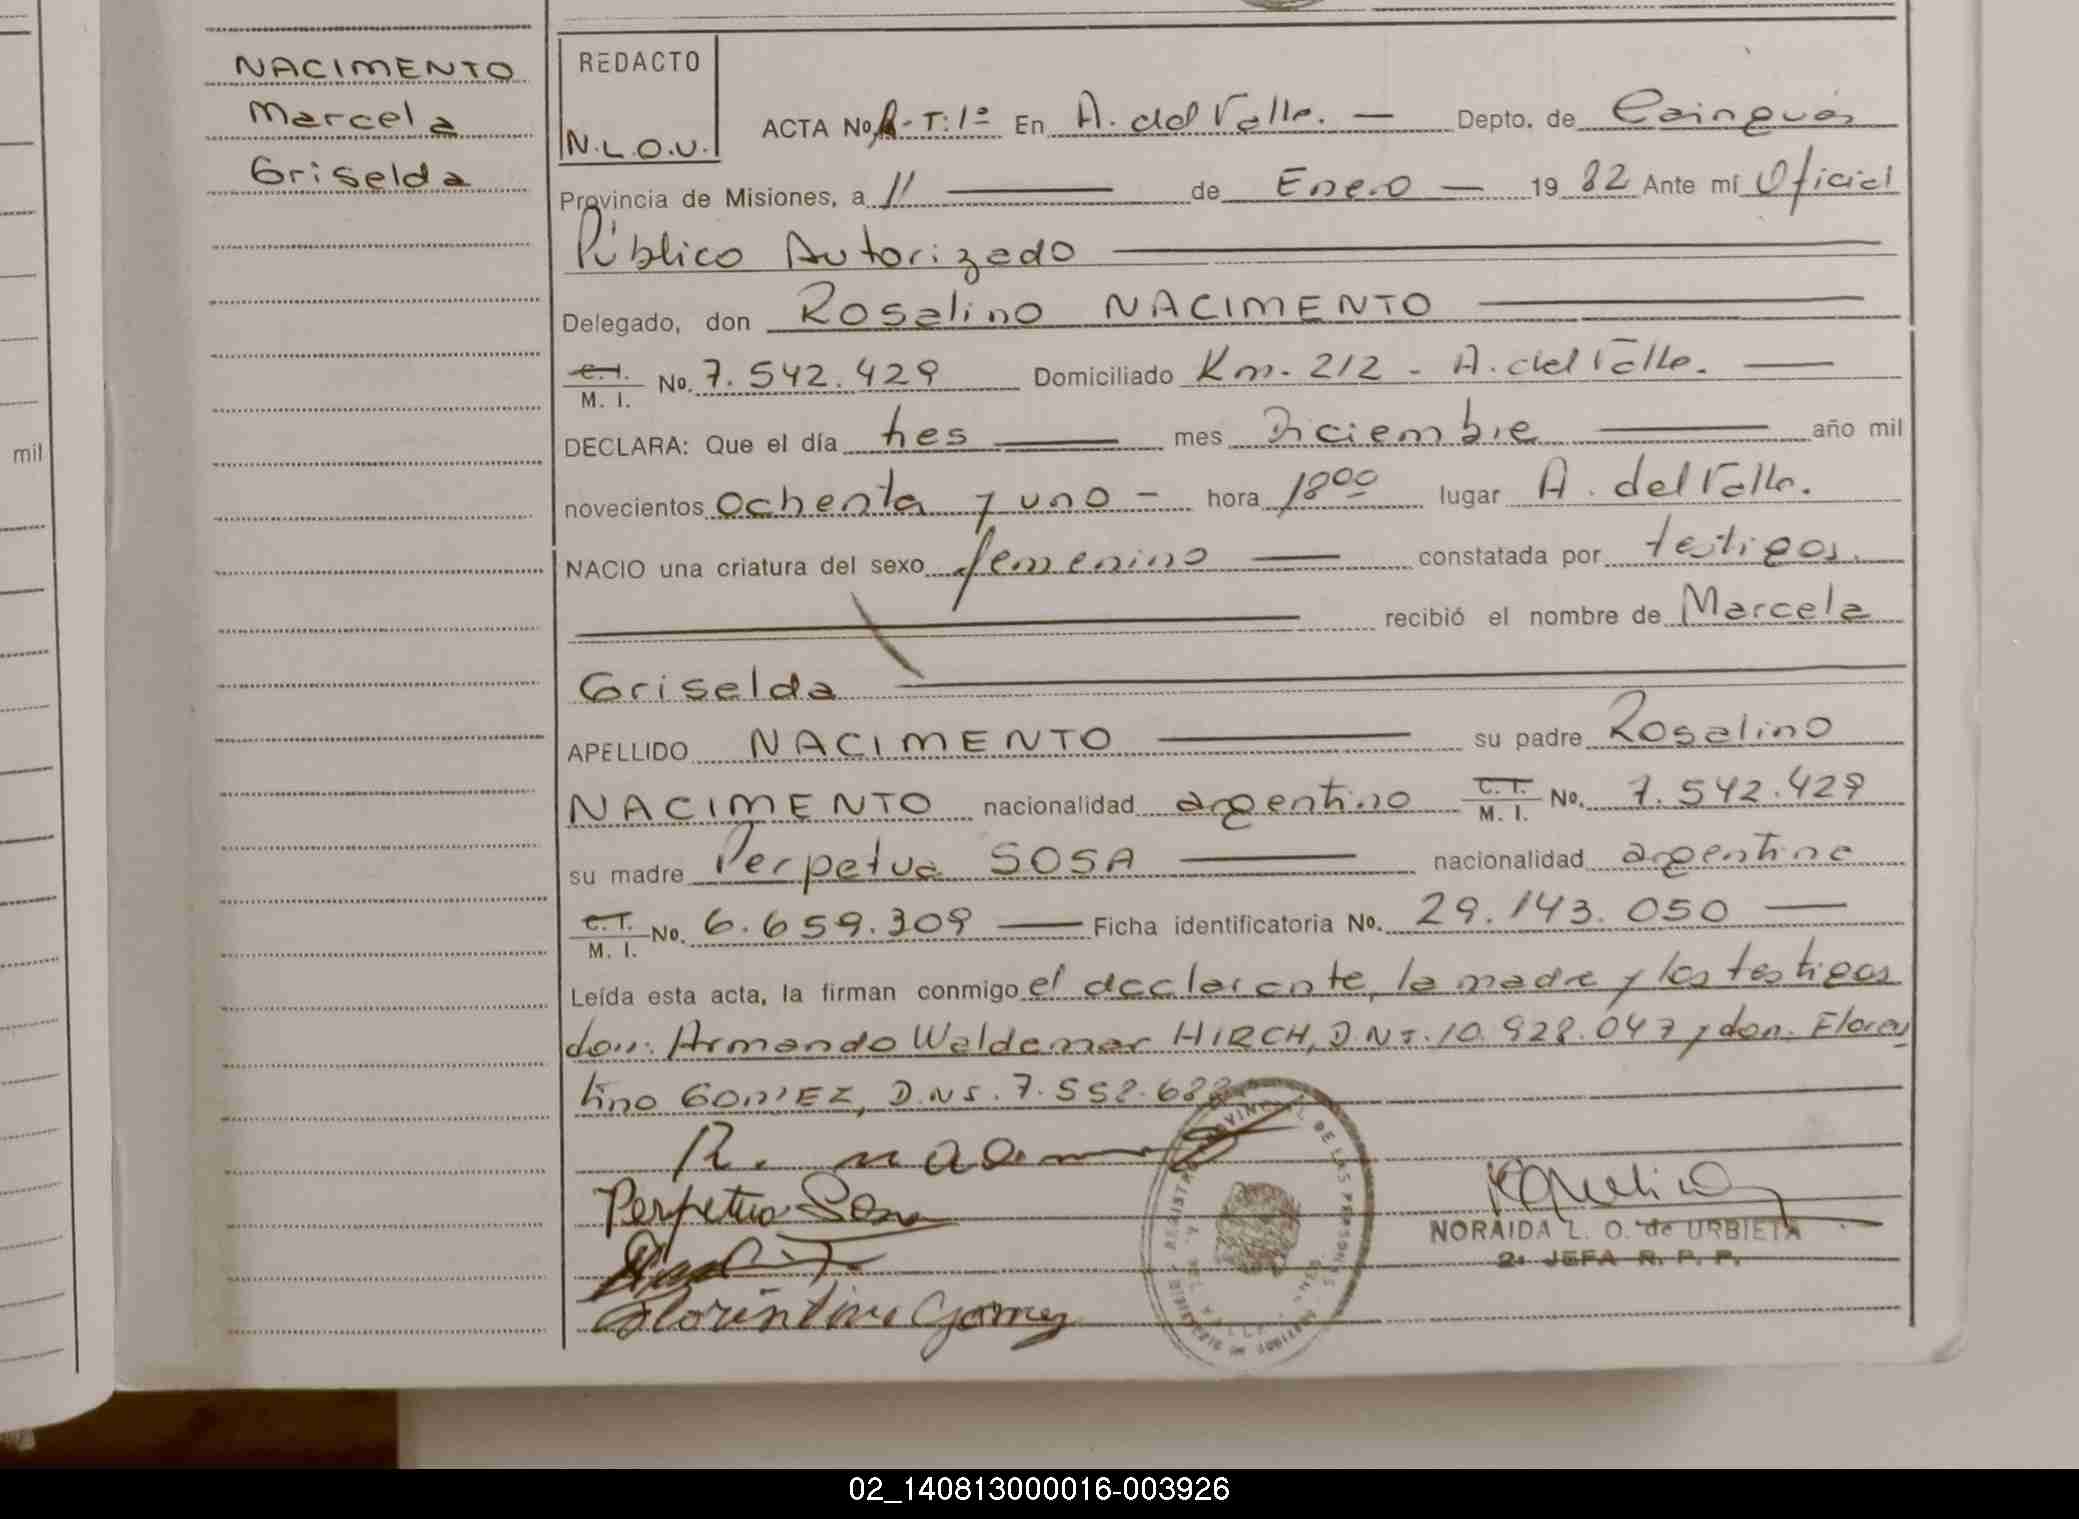 NACIMENTO
Marcela
Griselda
mil
REDACTO
N.L.O.U.
ACTA No. -T:1º En A. del Valle. — Depto. de Cainguás
Provincia de Misiones, a 11 — de Enero — 19 82 Ante mí Oficial
Público Autorizado —
Delegado, don Rosalino NACIMENTO —
C.I. M. I. No. 7.542.429 Domiciliado Km. 212 - A. del Valle. —
DECLARA: Que el día tres — mes Diciembre — año mil
novecientos ochenta y uno - hora 18⁰⁰ lugar A. del Valle.
NACIO una criatura del sexo femenino — constatada por testigos.
— recibió el nombre de Marcela
Griselda —
APELLIDO NACIMENTO — su padre Rosalino
NACIMENTO nacionalidad argentino C.I. M. I. No. 7.542.429
su madre Perpetua SOSA — nacionalidad argentina
C.I. M. I. No. 6.659.309 — Ficha identificatoria No. 29.143.050 —
Leída esta acta, la firman conmigo el declarante, la madre y los testigos
don: Armando Waldemar HIRCH, D.N.I. 10.928.047 y don: Floren
tino GOMEZ, D.N.I. 7.558.688
Perpetua Sosa
Florentino Gomez
NORAIDA L. O. de URBIETA
2ª JEFA R. P. P.
REGISTRO PROVINCIAL DE LAS PERSONAS
02_140813000016-003926